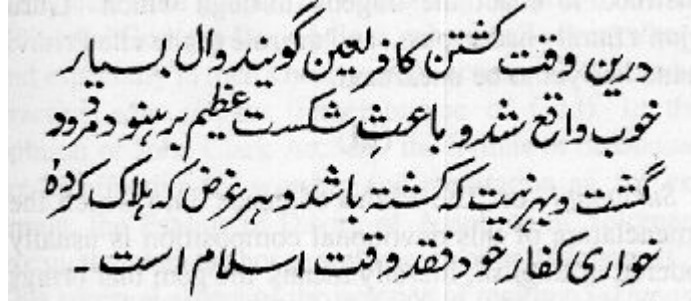 درین وقت کشتن کافر لعین گویند وال بسیار
خوب واقع شد و باعثِ شکست عظیم بر ہنود مردود
گشت و بہر نیت کہ کشتہ باشد و بہر غرض کہ ہلاک کردہ
خواری کفار خود نقد وقت اسلام است -